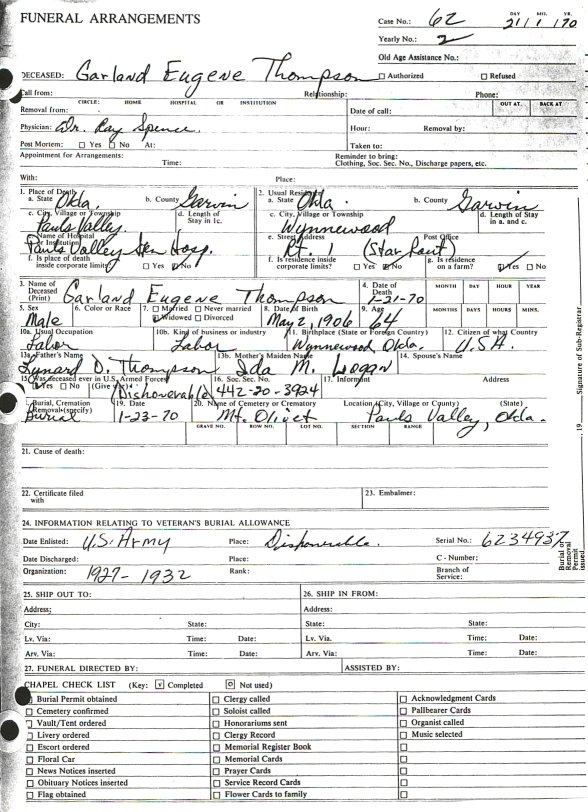 FUNERAL ARRANGEMENTS
Case No.: 62
DAY MO. YR.
21/1/70
Yearly No.: 2
Old Age Assistance No.:
DECEASED: Garland Eugene Thompson
Authorized Refused
Call from: Relationship: Phone:
CIRCLE: HOME HOSPITAL OR INSTITUTION
OUT AT. BACK AT
Removal from: Date of call:
Physician: Dr. Ray Spence. Hour: Removal by:
Post Mortem: Yes No At: Taken to:
Appointment for Arrangements: Reminder to bring:
Time: Clothing, Soc. Sec. No., Discharge papers, etc.
With: Place:
1. Place of Death 2. Usual Residence
a. State Okla. b. County Garvin a. State Okla. b. County Garvin
c. City, Village or Township d. Length of Stay in 1c. c. City, Village or Township d. Length of Stay in a. and c.
Pauls Valley. Wynnewood
Name of Hospital or Institution e. Street Address Post Office
Pauls Valley Gen Hosp. Rt. 1 (Star Rout)
f. Is place of death inside corporate limits? Yes No f. Is residence inside corporate limits? Yes No g. Is residence on a farm? Yes No
3. Name of Deceased (Print) Garland Eugene Thompson 4. Date of Death 1-21-70 MONTH DAY HOUR YEAR
5. Sex 6. Color or Race 7. Married Never married Widowed Divorced 8. Date of Birth 9. Age MONTHS DAYS HOURS MINS.
Male May 2, 1906 64
10a. Usual Occupation 10b. Kind of business or industry 11. Birthplace (State or Foreign Country) 12. Citizen of what Country
Labor Labor Wynnewood Okla. U.S.A.
13a. Father's Name 13b. Mother's Maiden Name 14. Spouse's Name
Lynard D. Thompson Ida M. Logan
15. Was deceased ever in U.S. Armed Forces 16. Soc. Sec. No. 17. Informant Address
Yes No (Give (Dishonerable) 442-20-3924
Burial, Cremation Removal (specify) 19. Date 20. Name of Cemetery or Crematory Location (City, Village or County) (State)
Burial 1-23-70 Mt. Olivet Pauls Valley, Okla.
GRAVE NO. ROW NO. LOT NO. SECTION RANGE
21. Cause of death:
22. Certificate filed with 23. Embalmer:
24. INFORMATION RELATING TO VETERAN'S BURIAL ALLOWANCE
Date Enlisted: U.S. Army Place: Dishonerable. Serial No.: 6234937
Date Discharged: Place: C - Number:
Organization: 1927-1932 Rank: Branch of Service:
25. SHIP OUT TO: 26. SHIP IN FROM:
Address: Address:
City: State: State: State:
Lv. Via: Time: Date: Lv. Via. Time: Date:
Arv. Via: Time: Date: Arv. Via: Time: Date:
27. FUNERAL DIRECTED BY: ASSISTED BY:
CHAPEL CHECK LIST (Key: v Completed o Not used)
Burial Permit obtained Clergy called Acknowledgment Cards
Cemetery confirmed Soloist called Pallbearer Cards
Vault/Tent ordered Honorariums sent Organist called
Livery ordered Clergy Record Music selected
Escort ordered Memorial Register Book
Floral Car Memorial Cards
News Notices inserted Prayer Cards
Obituary Notices inserted Service Record Cards
Flag obtained Flower Cards to family
Signature of Sub-Registrar
19
Burial or Removal Permit issued